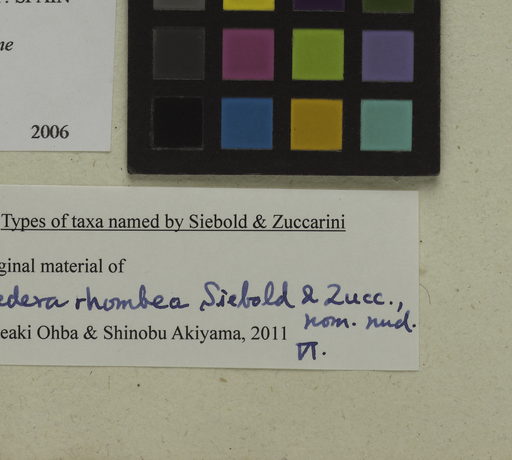 SPAIN
ne
2006
Types of taxa named by Siebold & Zuccarini
ginal material of
edera rhombea Siebold & Zucc.,
nom. nud.
eaki Ohba & Shinobu Akiyama, 2011